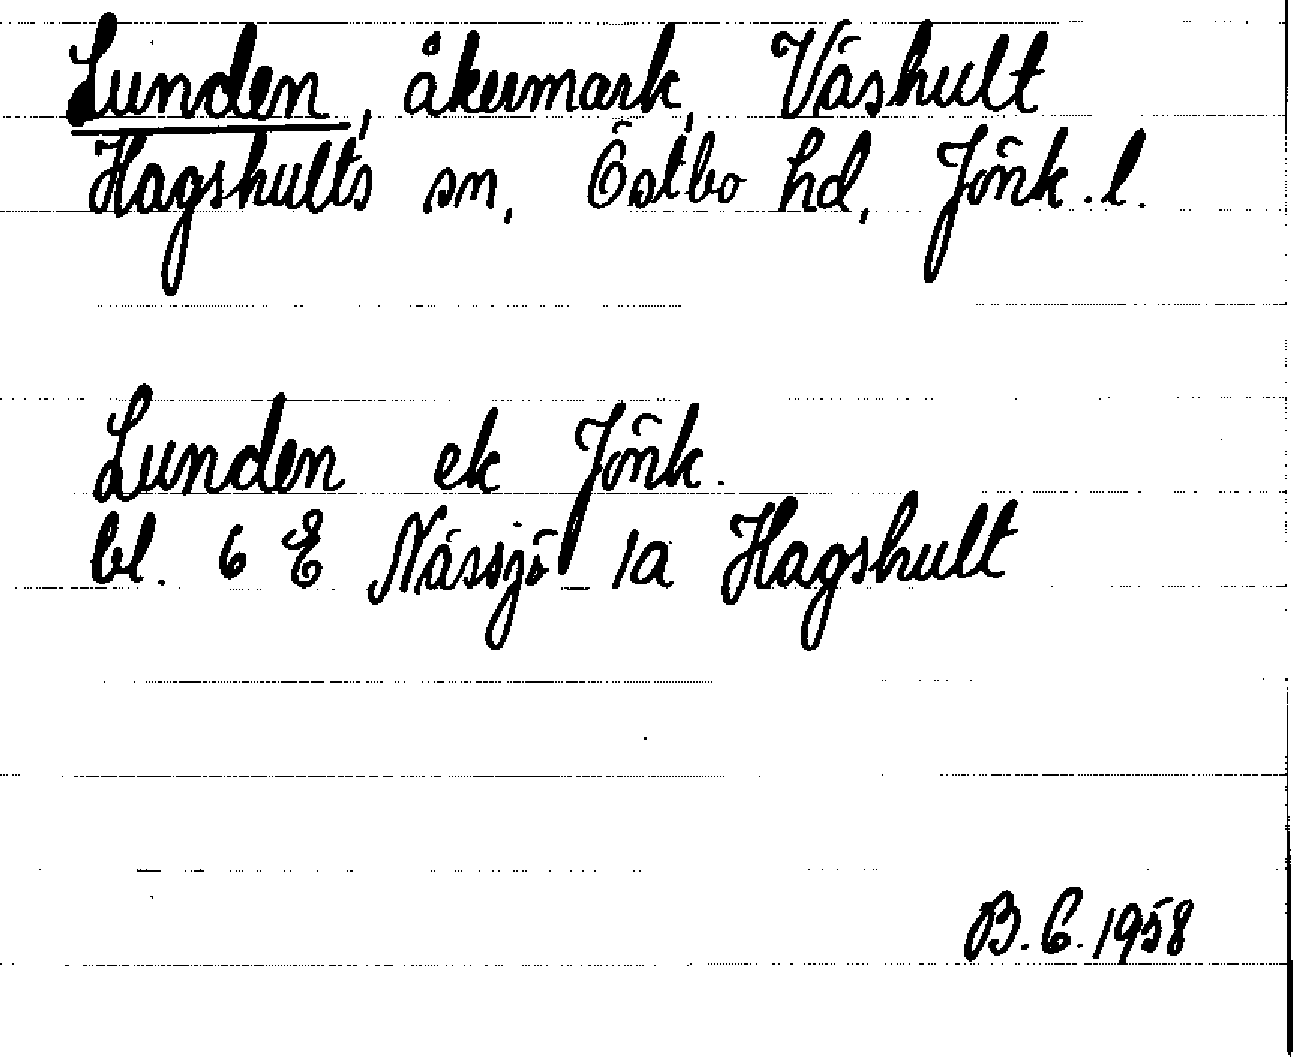 Lunden, åkermark, Väshult
Hagshults sn, Östbo hd, Jönk. l.
Lunden ek Jönk.
bl. 6 E Nässjö 1a Hagshult
B. G. 1958